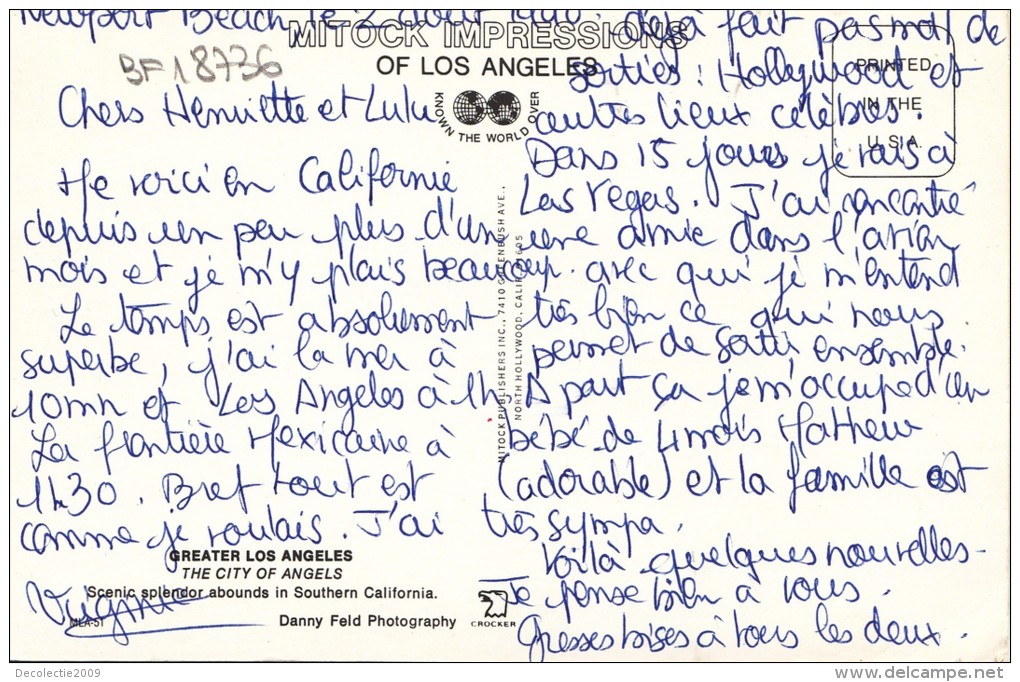 Newport Beach, le 2 août
MITOCK IMPRESSIONS
OF LOS ANGELES
KNOWN THE WORLD OVER
PRINTED
IN THE
U.S.A.
BF18736
Chers Henriette et Lulu
Me voici en Californie
depuis un peu plus d'un
mois et je m'y plais beaucoup.
Le temps est absolument
superbe, j'ai la mer à
10mn et Los Angeles à 1h,
La frontière Mexicaine à
1h30. Bref tout est
comme je voulais. J'ai
déjà fait pas mal de
sorties : Hollywood et
autres lieux célèbres.
Dans 15 jours je vais à
Las Vegas. J'ai rencontré
une amie dans l'avion
avec qui je m'entend
très bien ce qui nous
permet de sortir ensemble.
A part ça je m'occupe d'un
bébé de 4 mois Mathew
(adorable) et la famille est
très sympa.
Voilà quelques nouvelles.
Je pense bien à vous.
Grosses bises à tous les deux.
Virginie
MITOCK PUBLISHERS INC., 7410 GREENBUSH AVE.,
NORTH HOLLYWOOD, CALIF. 91605
GREATER LOS ANGELES
THE CITY OF ANGELS
Scenic splendor abounds in Southern California.
MLA-51
Danny Feld Photography
CROCKER
Decolectie2009
www.delcampe.net